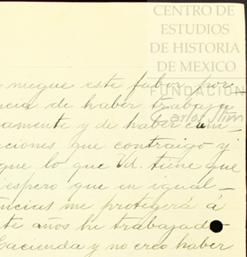 CENTRO DE
ESTUDIOS
DE HISTORIA
DE MEXICO
FUNDACIÓN
Carlos Slim
niegue este favor por
ncia de haber trabaja
amente y de haber cum-
ciones que contraigo y
que lo que Ud. tiene que
espero que en igual-
ncias me protegerá á
te años he trabajado
Hacienda y no creo haber